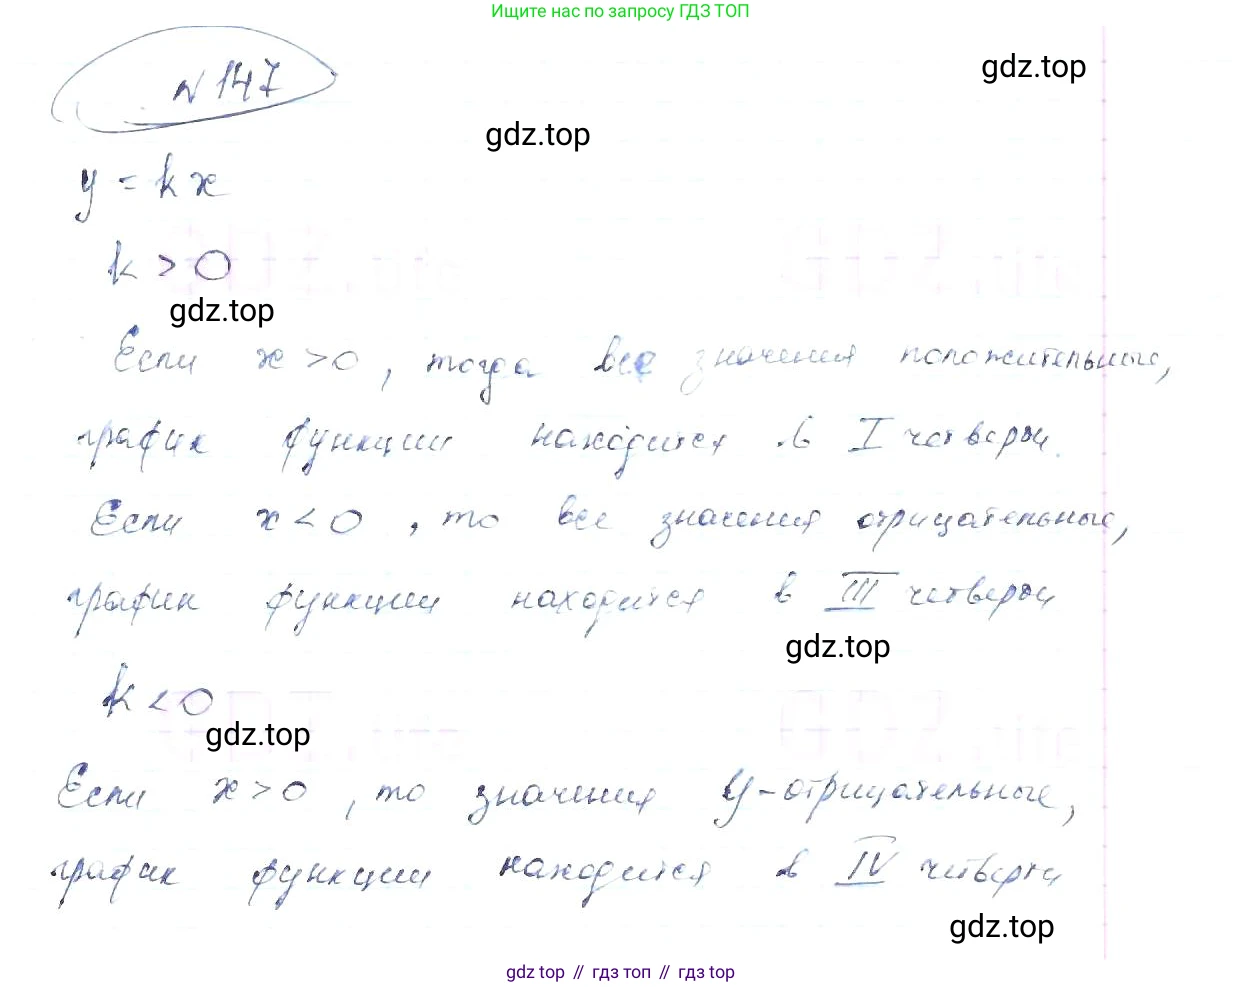 Ищите нас по запросу ГДЗ ТОП
gdz.top
N 147
gdz.top
y = kx
k > 0
gdz.top
Если x > 0, тогда все значения положительные,
график функции находится в I четверти.
Если x < 0, то все значения отрицательные,
график функции находится в III четверти
gdz.top
k < 0
gdz.top
Если x > 0, то значения y - отрицательные,
график функции находится в IV четверти
gdz.top
gdz top // гдз топ // гдз top